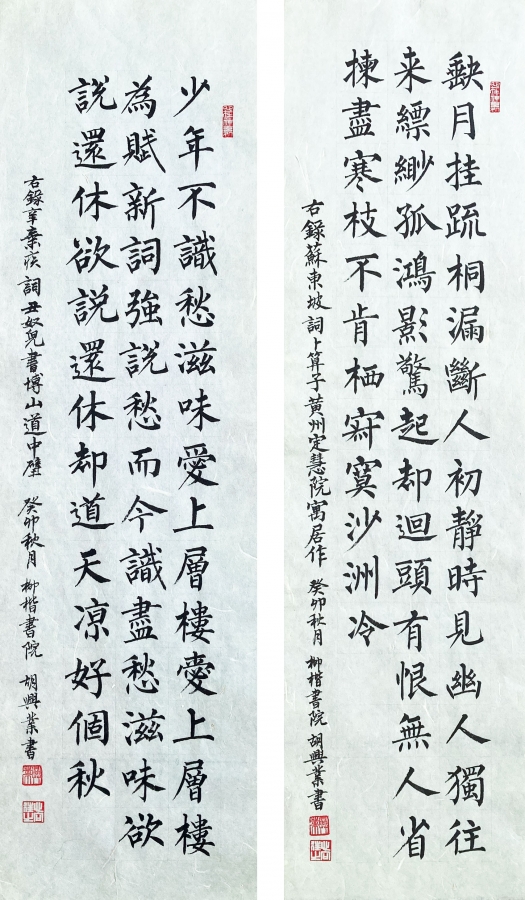 缺月挂疏桐漏斷人初靜時見幽人獨往
来縹緲孤鴻影驚起却迴頭有恨無人省
揀盡寒枝不肯栖寂寞沙洲冷
右錄蘇東坡詞卜算子黃州定慧院寓居作 癸卯秋月 柳楷書院 胡興業書
少年不識愁滋味愛上層樓愛上層樓
為賦新詞強說愁而今識盡愁滋味欲
說還休欲說還休却道天凉好個秋
右錄辛棄疾詞丑奴兒書博山道中壁 癸卯秋月 柳楷書院 胡興業書